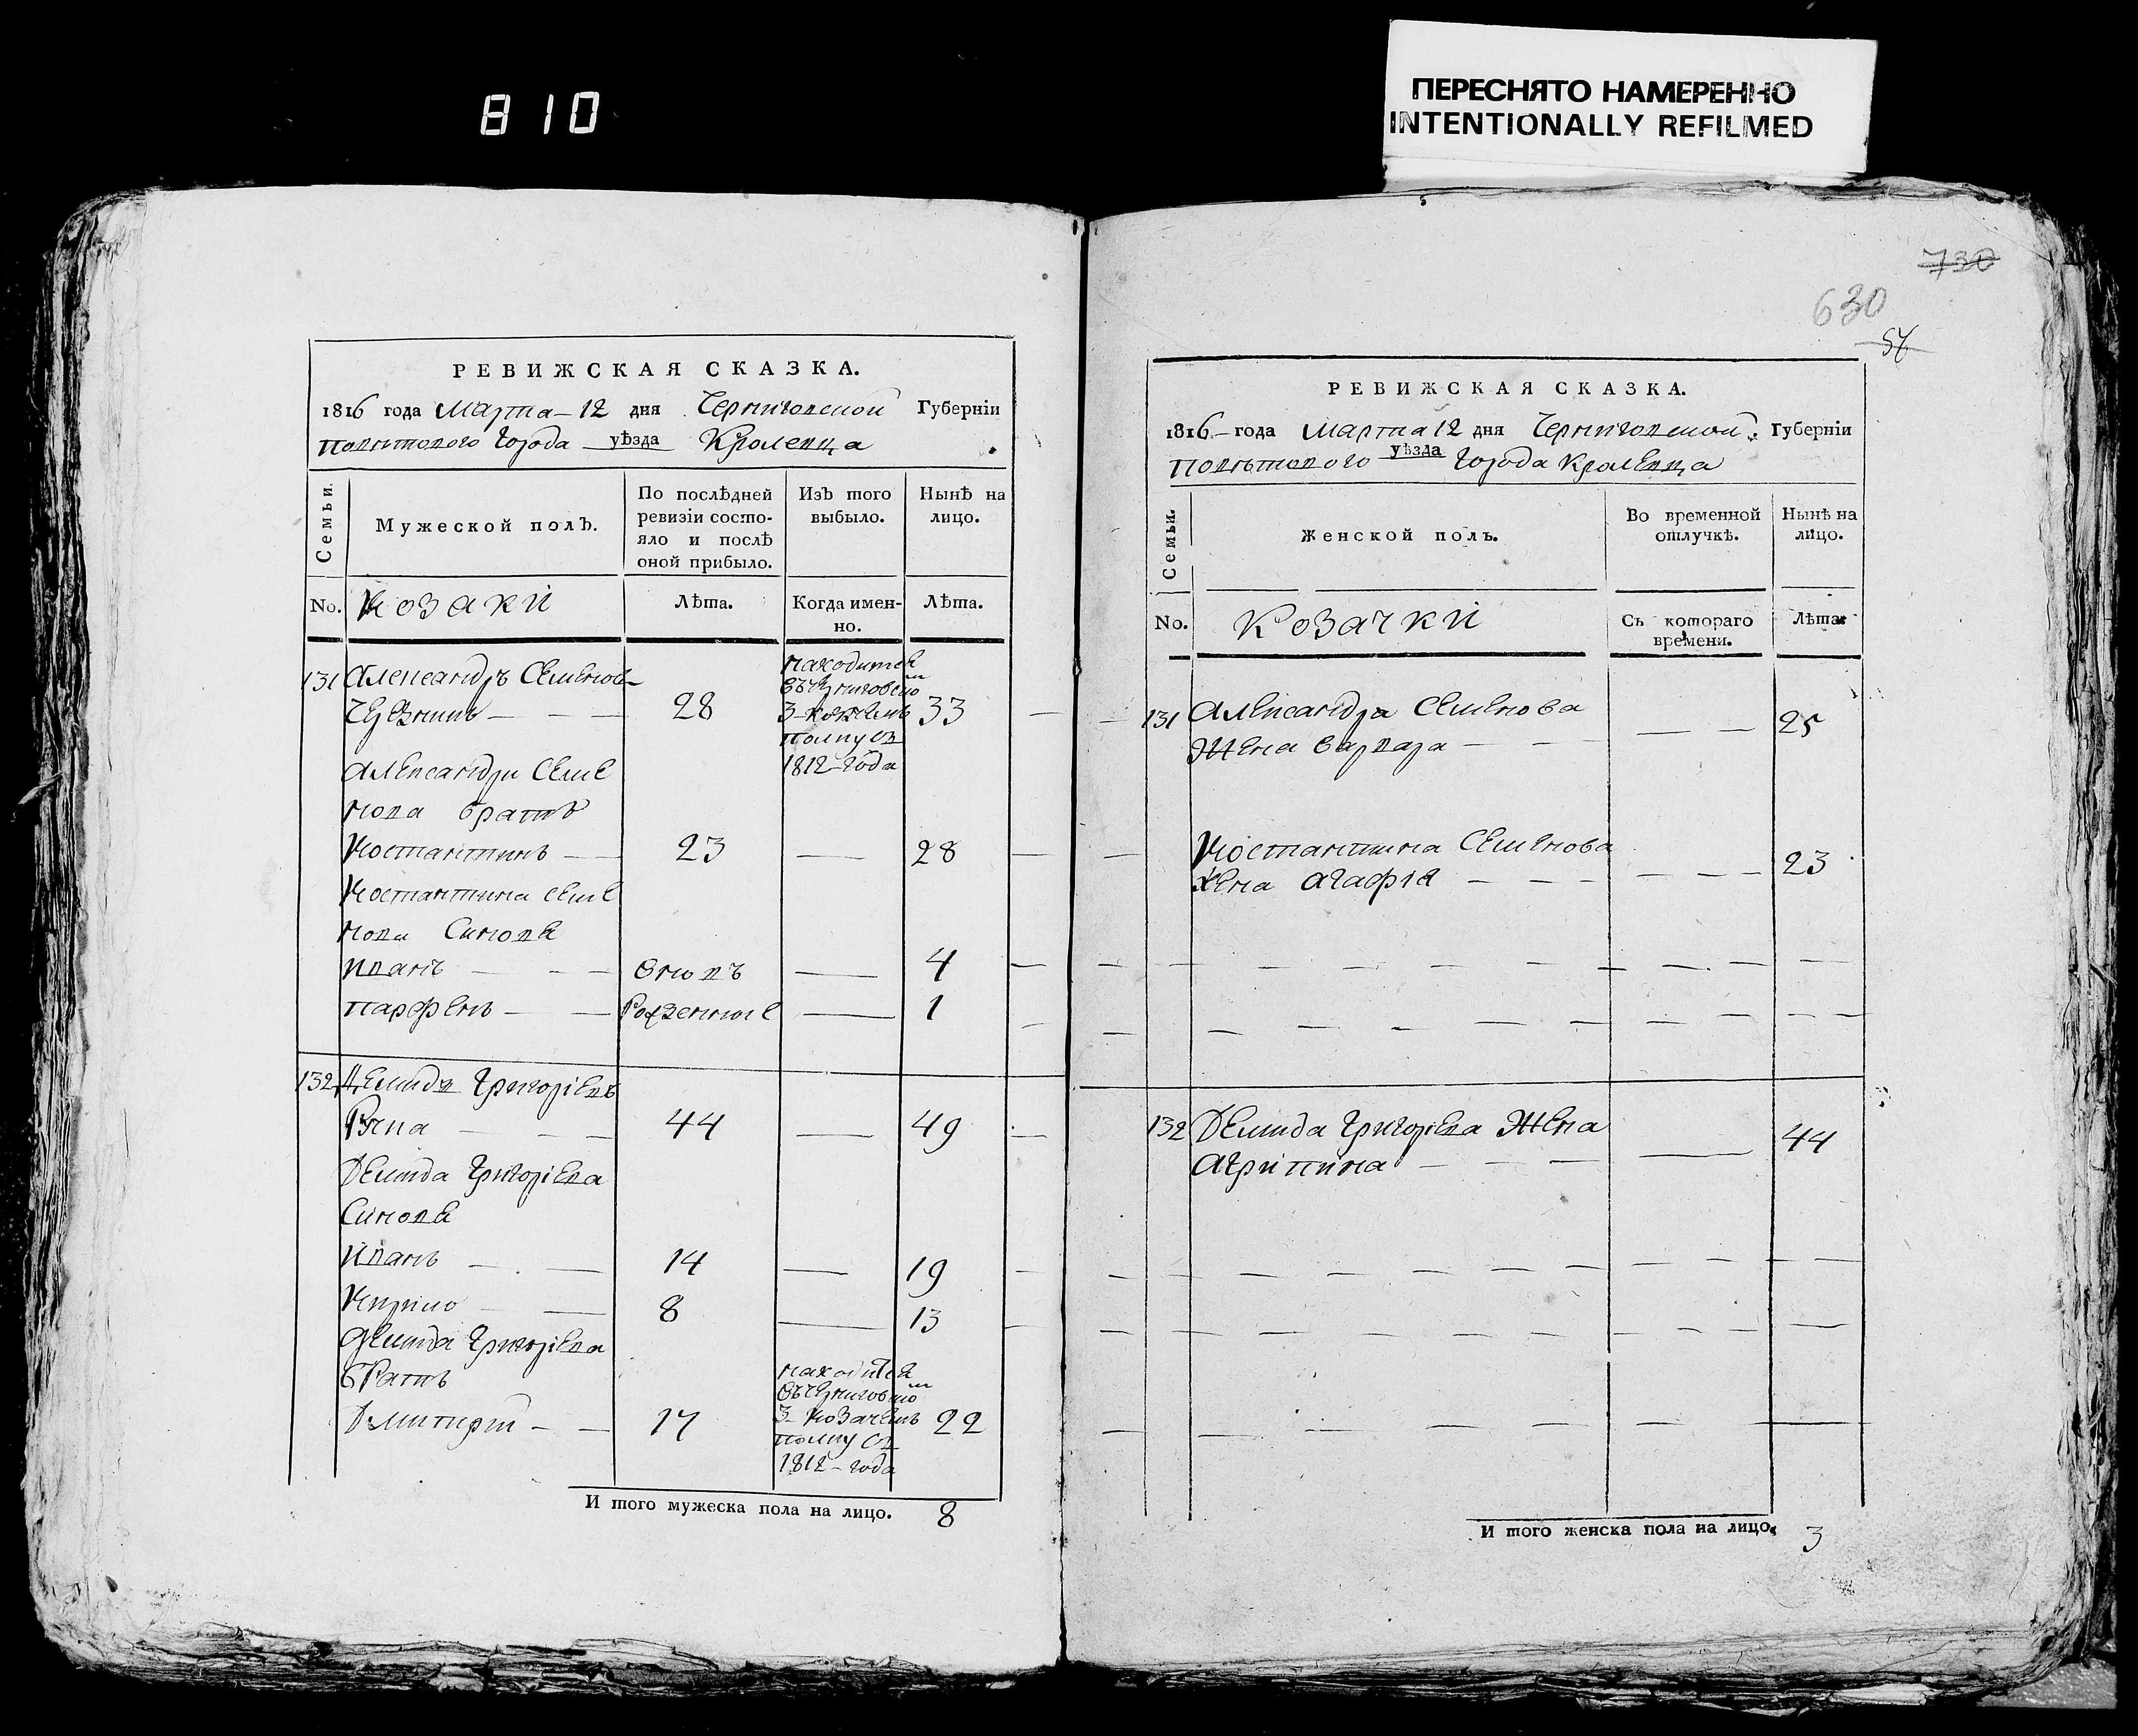 810
ПЕРЕСНЯТО НАМЕРЕННО
INTENTIONALLY REFILMED
730
630
РЕВИЖСКАЯ СКАЗКА.
1816 года Марта 12 дня Черниговской Губерніи
Поветового Города уѣзда Кролевца
Семьи.
Мужеской полъ.
По послѣдней ревизіи состо-
яло и послѣ
оной прибыло.
Изъ того
выбыло.
Нынѣ на
лицо.
No. Козаки
Лѣта.
Когда имен-
но.
Лѣта.
131 Александръ Семеновъ
28
находится
въ Черниговско
3 козачемъ
полку съ
1812 года
33
Александра Семе
нова братъ
Костантинъ 23 28
Костантина Семе
нова Синовя
Иванъ вновъ 4
Парфенъ Рожденние 1
132 Демидъ Григоріевъ
44 49
Демида Григоріева
Синовя
Иванъ 14 19
Кирило 8 13
Демида Григоріева
братъ
Дмитрій 17
находится
въ Черниговско
3 козачемъ
полку съ
1812 года
22
И того мужеска пола на лицо. 8
РЕВИЖСКАЯ СКАЗКА.
1816 года Марта 12 дня Черниговской Губерніи
Поветового уѣзда Города Кролевца
Семьи.
Женской полъ.
Во временной
отлучкѣ.
Нынѣ на
лицо.
No. Козачки
Съ котораго
времени.
Лѣта.
131 Александра Семенова
жена Варвара 25
Костантина Семенова
жена Агафія 23
132 Демида Григоріева жена
Агрипина 44
И того женска пола на лицо. 3